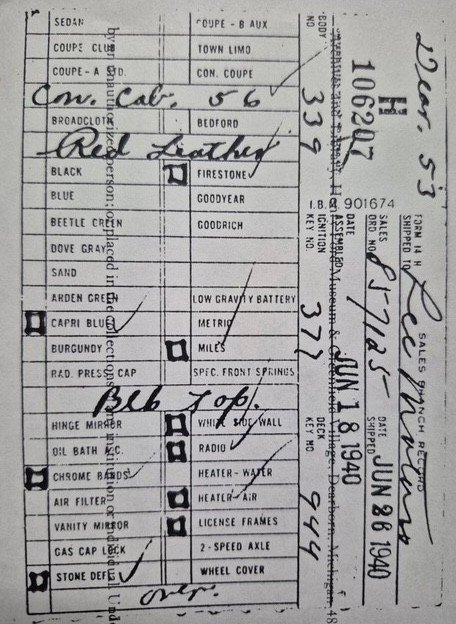 SEDAN COUPE - B AUX
COUPE CLUB TOWN LIMO
COUPE - A STD. CON. COUPE
Con. Cab. 56
BROADCLOTH BEDFORD
Red Leather
BLACK FIRESTONE
BLUE GOODYEAR
BEETLE GREEN GOODRICH
DOVE GRAY
SAND
ARDEN GREEN LOW GRAVITY BATTERY
CAPRI BLUE METRIC
BURGUNDY MILES
RAD. PRESS CAP SPEC. FRONT SPRINGS
Blk Top.
HINGE MIRROR WHITE SIDE WALL
OIL BATH A.C. RADIO
CHROME BANDS HEATER - WATER
AIR FILTER HEATER - AIR
VANITY MIRROR LICENSE FRAMES
GAS CAP LOCK 2 - SPEED AXLE
STONE DEFL WHEEL COVER
over.
FORM 14 H SALES BRANCH RECORD
SHIPPED TO
Dear. 53
SALES ORD NO. 857125
DATE SHIPPED JUN 26 1940
H
106207
I.B.M. 901674
DATE ASSEMBLED JUN 18 1940
BODY NO 339
IGNITION KEY NO 377
DECK KEY NO 944
Museum & Greenfield Village, Dearborn, Michigan 48
by an unauthorized person; or placed in the collections of any institution or individual. Und